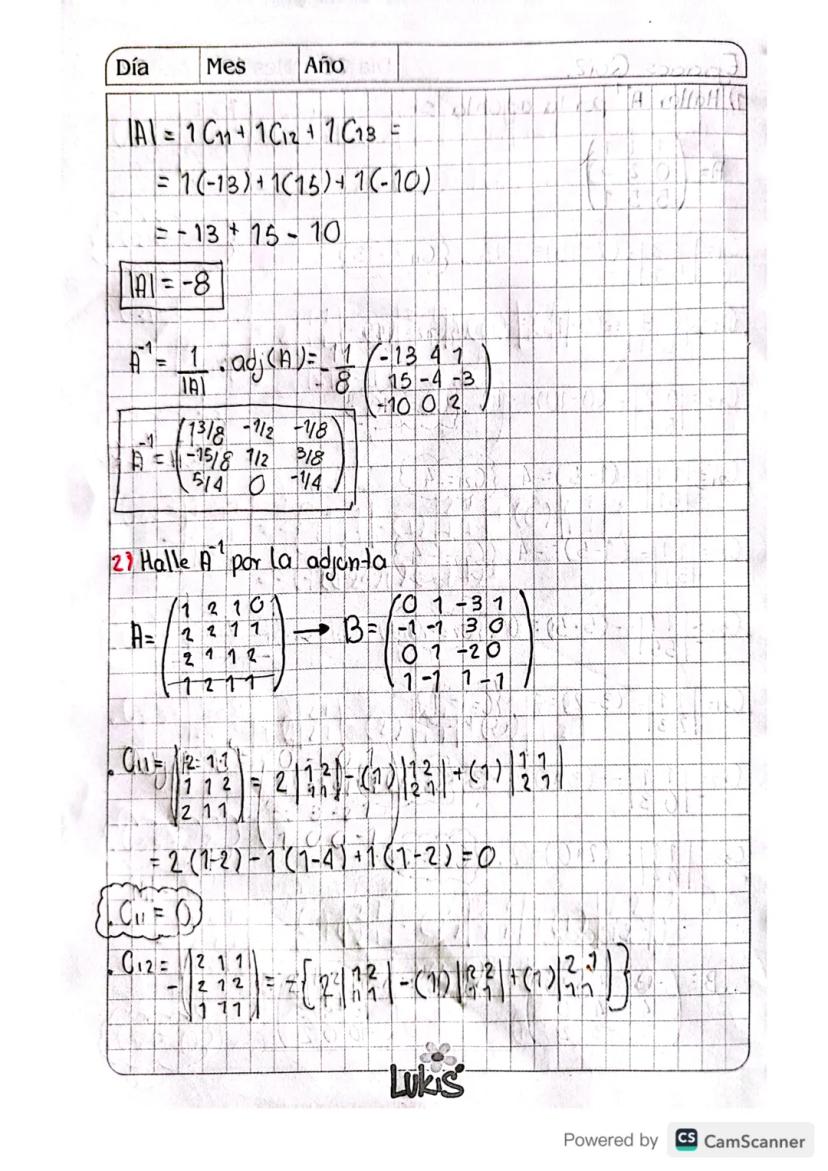 Día Mes Año
|A| = 1C11 + 1C12 + 1C13 =
= 1(-13) + 1(15) + 1(-10)
= -13 + 15 - 10
|A| = -8
A⁻¹ = 1/|A| · adj(A) = -1/8 (-13 4 1
15 -4 -3
-10 0 2)
A⁻¹ = (13/8 -1/2 -1/8
-15/8 1/2 3/8
5/4 0 -1/4)
2) Halle A⁻¹ por la adjunta
A = (1 2 1 0
2 2 1 1
2 1 1 2
1 2 1 1) → B = (0 1 -3 1
-1 -1 3 0
0 1 -2 0
1 -1 1 -1)
. C11 = |2 1 1
1 1 2
2 1 1| = 2 |1 2
1 1| - (1) |1 2
2 1| + (1) |1 1
2 1|
= 2(1-2) - 1(1-4) + 1(1-2) = 0
. C11 = 0
. C12 = - |2 1 1
2 1 2
1 1 1| = -{2 |1 2
1 1| - (1) |2 2
1 1| + (1) |2 1
1 1|}
LUKIS
Powered by CS CamScanner